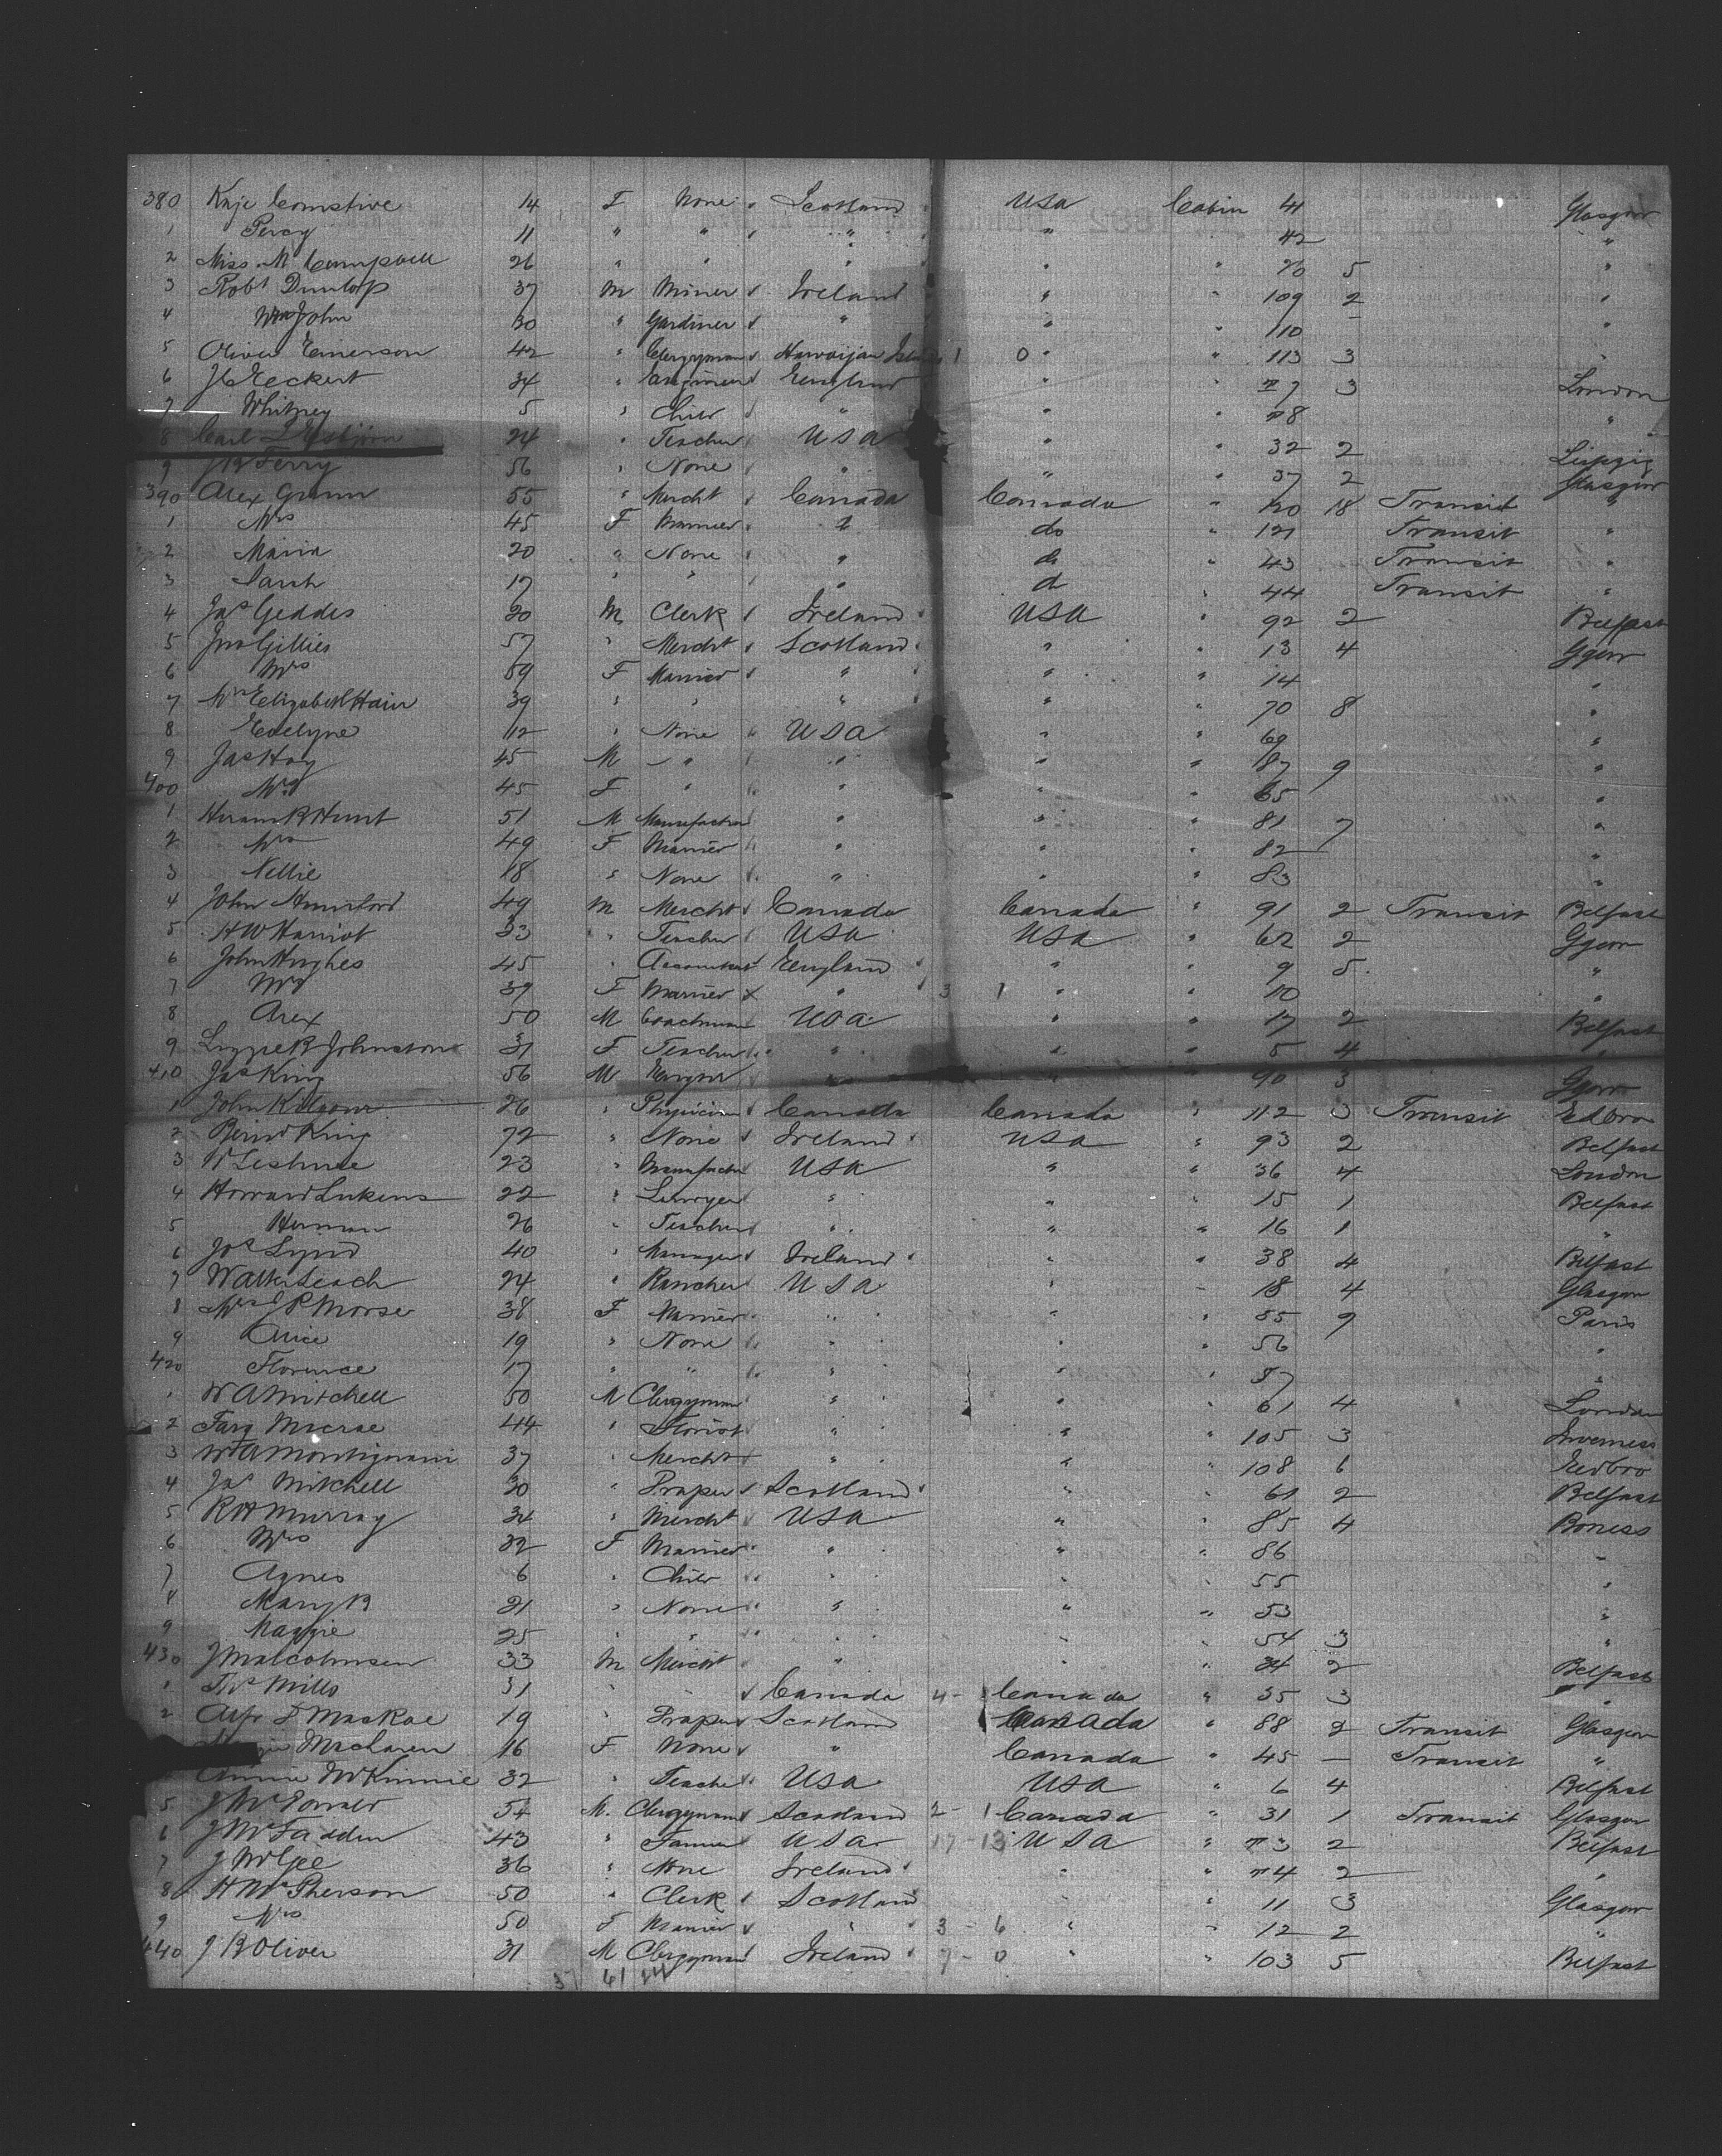 380 Comstive 14 F None " Scotland USA Cabin 41 Glasgow
1 Percy 11 " " " " 42 "
2 Miss M Campbell 26 " " " " " 5 "
3 Robt Dunlop 37 M Miner Ireland " " 109 2 "
4 John 30 " Gardiner " " " 110 "
5 Oliver Emerson 42 " Clergyman Hawaijan 1 0 " " 113 3 "
6 Eckert 34 " England " " 7 3 London
7 Whitney 5 " Child " " " 8 "
8 Carl 24 " Teacher USA " " 32 2 Leipzig
9 Ferry 56 " None " " 37 2 Glasgow
390 Alex Gunn 55 " Mercht Canada Canada " 120 18 Transit "
1 Mrs 45 F Married " do " 121 Transit "
2 Maria 20 " None " do " 43 Transit "
3 Sarah 17 " " " do " 44 Transit "
4 Jas Geddes 20 M Clerk Ireland USA " 92 2 Belfast
5 Jno Gillies 57 " Mercht Scotland " " 13 4 Ggow
6 Mrs 59 F Married " " " 14 "
7 Elizabeth Hain 39 " " " " " 70 8 "
8 Evelyne 12 " None USA " " 69 "
9 Jas Hoy 45 M " " " " 87 9 "
400 Mrs 45 F " " " " 65 "
1 Hiram R Hunt 51 M " " " 81 7 "
2 Mrs 49 F Married " " " 82 "
3 Nellie 18 " None " " " 83 "
4 John 49 M Mercht Canada Canada " 91 2 Transit Belfast
5 H W Harriot 33 " Teacher USA USA " 62 2 Ggow
6 John Hughes 45 " Accountant England " " 9 5 "
7 Mrs 39 F Married " 3 1 " " 10 "
8 Alex 50 M Coachman USA " " 17 2 Belfast
9 Lizzie B Johnston 31 F Teacher " " " 5 4 "
410 Jas King 56 M " " " 90 3 Ggow
1 John Kilgour 26 " Physician Canada Canada " 112 3 Transit Edbro
2 King 72 " None Ireland USA " 93 2 Belfast
3 W 23 " USA " " 36 4 London
4 Howard Lukens 22 " Lawyer " " " 15 1 Belfast
5 Herman 26 " Teacher " " " 16 1 "
6 40 " Manager Ireland " " 38 4 Belfast
7 Walter Leach 24 " Rancher USA " " 18 4 Glasgow
8 Mrs J P Morse 38 F Married " " " 9 Paris
9 Alice 19 " None " " " 56 "
420 Florence 17 " " " " " 57 "
1 W A Mitchell 50 M Clergyman " " " 61 4 London
2 Farq Mcrae 44 " Florist " " " 105 3 Inverness
3 W A Montignani 37 " Mercht " " " 108 6 Edbro
4 Jas Mitchell 30 " Draper Scotland " " 61 2 Belfast
5 R H Murray 34 " Mercht USA " " 85 4 Boness
6 Mrs 32 F Married " " " 86 "
7 Agnes 6 " Child " " " 55 "
8 Mary B 21 " None " " " 53 "
9 Maggie 25 " " " " " 54 3 "
430 J Malcolmson 33 M Mercht " " " 34 2 Belfast
1 Mills 31 " Canada 4 - Canada " 35 3 "
2 MacRae 19 " Draper Scotland Canada " 88 2 Transit Glasgow
Maclaren 16 F None " Canada " 45 — Transit "
Annie McKinnie 32 " Teacher USA USA " 6 4 Belfast
5 J McDonald 54 M. Clergyman Scotland 2 - 1 Canada " 31 1 Transit Glasgow
6 J McFadden 43 " Farmer USA 17 - 13 USA " 3 2 Belfast
7 J McGee 36 " None Ireland " " 4 2 "
8 H McPherson 50 " Clerk Scotland " " 11 3 Glasgow
9 Mrs 50 F Married " 3 - 6 " " 12 2 "
440 J B Oliver 31 M Clergyman Ireland 7 - 0 " " 103 5 Belfast